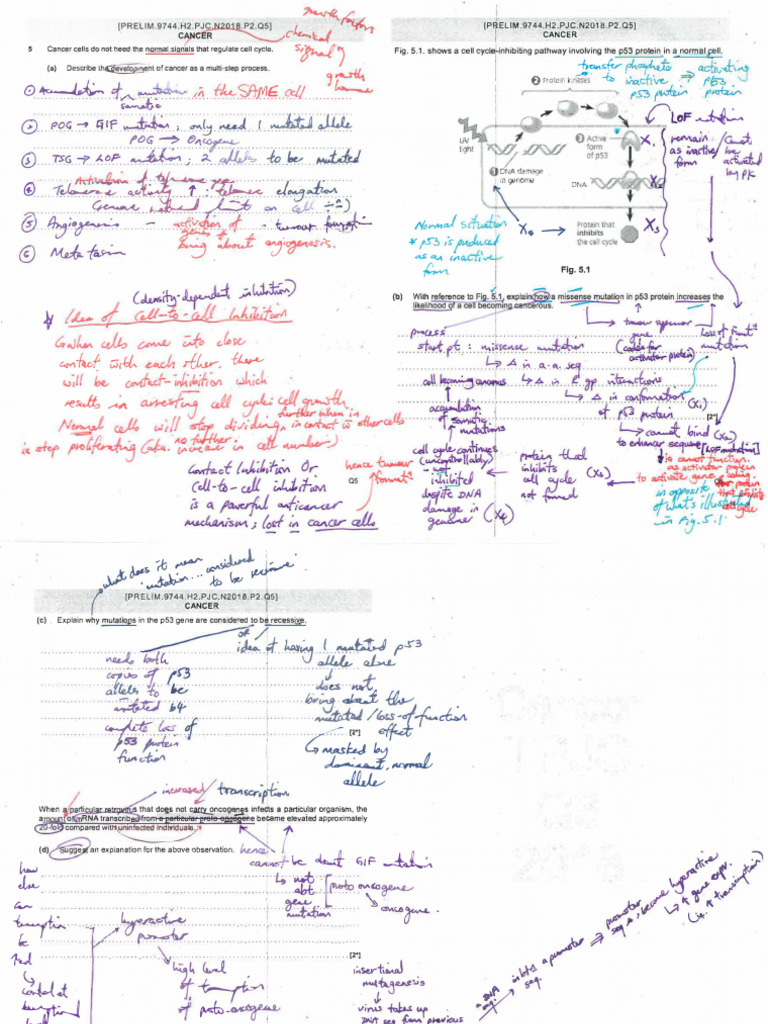 [PRELIM.9744.H2.PJC.N2018.P2.Q5]
CANCER
growth factors
chemical
signals
growth
5 Cancer cells do not heed the normal signals that regulate cell cycle.
(a) Describe the development of cancer as a multi-step process.
① Accumulation of mutation in the SAME cell
somatic
② POG → GIF mutation; only need 1 mutated allele
POG → Oncogene
③ TSG → LOF mutation; 2 alleles to be mutated
Activation of telomerase gene
④ Telomerase activity ↑ : telomere elongation
limit on cell ÷
⑤ Angiogenesis - activation of - tumour formation
genes to
bring about angiogenesis.
⑥ Metastasis
(density-dependent inhibition)
Idea of Cell-to-cell Inhibition
when cells come into close
contact with each other, there
will be contact-inhibition which
results in arresting cell cycle; cell growth
further when in
Normal cells will stop dividing, in contact w other cells
no further
is stop proliferating (aka. increase in cell number)
Contact Inhibition Or
Cell-to-cell inhibition
is a powerful anticancer
mechanism; lost in cancer cells
hence tumour
formatⁿ
Q5
[PRELIM.9744.H2.PJC.N2018.P2.Q5]
CANCER
Fig. 5.1. shows a cell cycle-inhibiting pathway involving the p53 protein in a normal cell.
transfer phosphate
to inactive
p53 protein
⇒ activating
p53
protein
② Protein kinases
UV
light
① DNA damage
in genome
③ Active
form
of p53
DNA
Protein that
inhibits
the cell cycle
X₁
X₂
X₃
X₄
LOF mutation
remain
as inactive
form
/ Cannot
be
activated
by PK
Normal situation
* p53 is produced
as an inactive
form
Fig. 5.1
(b) With reference to Fig. 5.1, explain how a missense mutation in p53 protein increases the
likelihood of a cell becoming cancerous.
process
start pt : missense mutation
↳ Δ in a.a. seq
↳ Δ in R gp interactions
↳ Δ in conformation (X₁)
of p53 protein
tumour suppressor
gene
(codes for
activator protein)
loss of functⁿ
mutation
[2*]
↳ cannot bind (X₂)
to enhancer sequence [LOF mutation]
↳ cannot function
as activator protein
to activate gene coding
for protein
that inhibits
cell cycle
in opposite
of what's illustrated
in Fig. 5.1
protein that
inhibits
cell cycle
not found
(X₃)
cell cycle continues
(uncontrollably)
- not
inhibited
despite DNA
damage in
genome (X₄)
accumulation
of somatic
mutations
cell becoming cancerous
what does it mean
mutation... considered
to be recessive
[PRELIM.9744.H2.PJC.N2018.P2.Q5]
CANCER
(c) Explain why mutations in the p53 gene are considered to be recessive.
needs both
copies of p53
alleles to be
mutated b4
complete loss of
p53 protein
function
or
idea of having 1 mutated p53
allele alone
↳ does not
bring about the
mutated / loss-of function
effect
[2*]
↳ masked by
dominant, normal
allele
increased / transcription
When a particular retrovirus that does not carry oncogenes infects a particular organism, the
amount of mRNA transcribed from a particular proto-oncogene became elevated approximately
20-fold compared with uninfected individuals.
(d) Suggest an explanation for the above observation.
hence
cannot be about GIF mutation
↳ not
abt
gene
mutation
proto oncogene
↳ oncogene.
how
else
can
transcription
be
↳ control at
hyperactive
promoter
↳ high level
of transcription
of proto-oncogene
[2*]
insertional
mutagenesis
↳ virus takes up
DNA seq from previous
a DNA
seq.
inbtw a promoter
seq.
⇒ promoter
seq Δ; become hyperactive
↳ ↑ gene expr.
(ie. ↑ transcription)